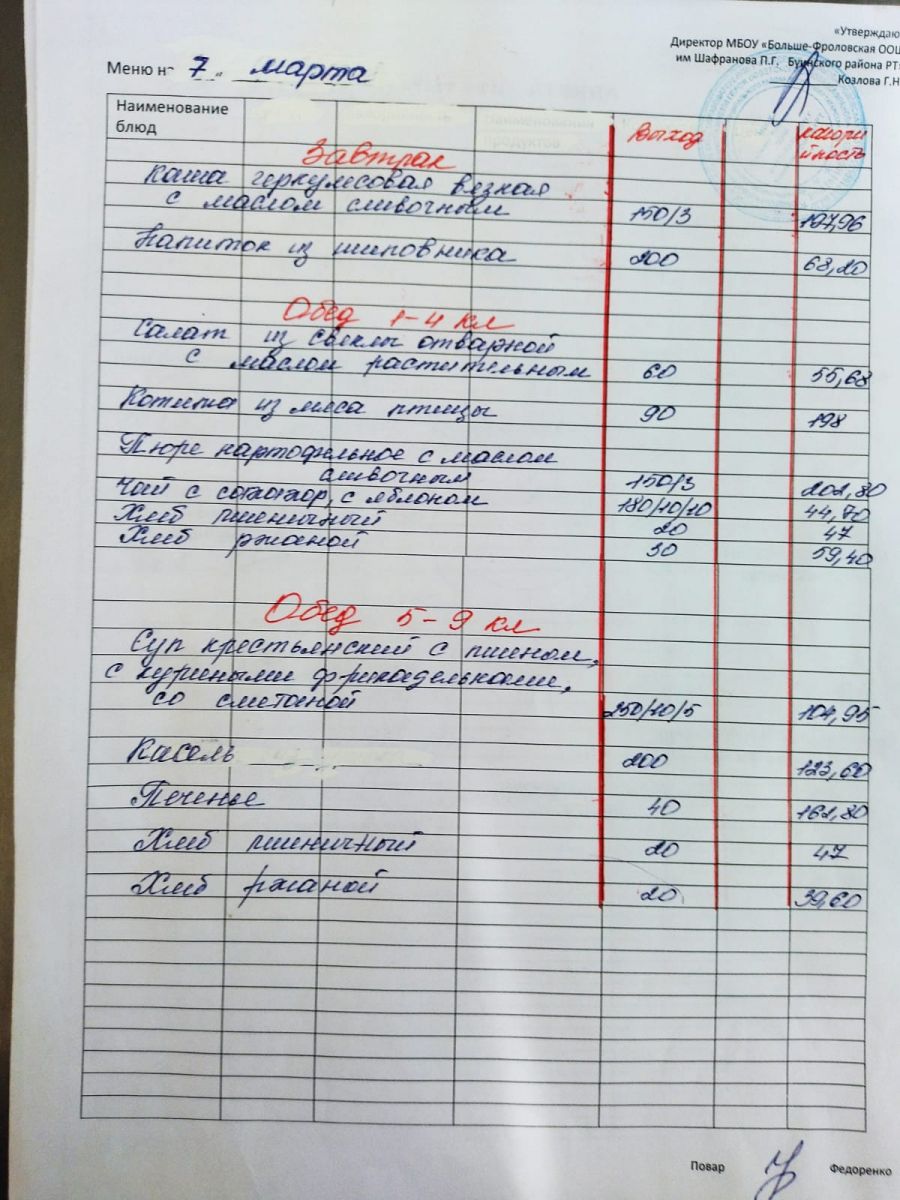 «Утверждаю
Директор МБОУ «Больше-Фроловская ООШ
им Шафранова П.Г. Буинского района РТ»
Козлова Г.Н
Меню на 7 марта
Наименование блюд
Выход
калорийность
Завтрак
Каша геркулесовая вязкая
с маслом сливочным 150/3
Напиток из шиповника 200 68,20
Обед 1-4 кл
Салат из свеклы отварной
с маслом растительным 60 55,68
Котлета из мяса птицы 90 198
Пюре картофельное с маслом
сливочным 150/3 202,80
Чай с сахаром, с яблоком 180/10/10 44,70
Хлеб пшеничный 20 47
Хлеб ржаной 30 59,40
Обед 5-9 кл
Суп крестьянский с пшеном,
с куриными фрикадельками,
со сметаной 250/10/5 104,95
Кисель 200 123,60
Печенье 40 162,80
Хлеб пшеничный 20 47
Хлеб ржаной 20 39,60
Повар Федоренко